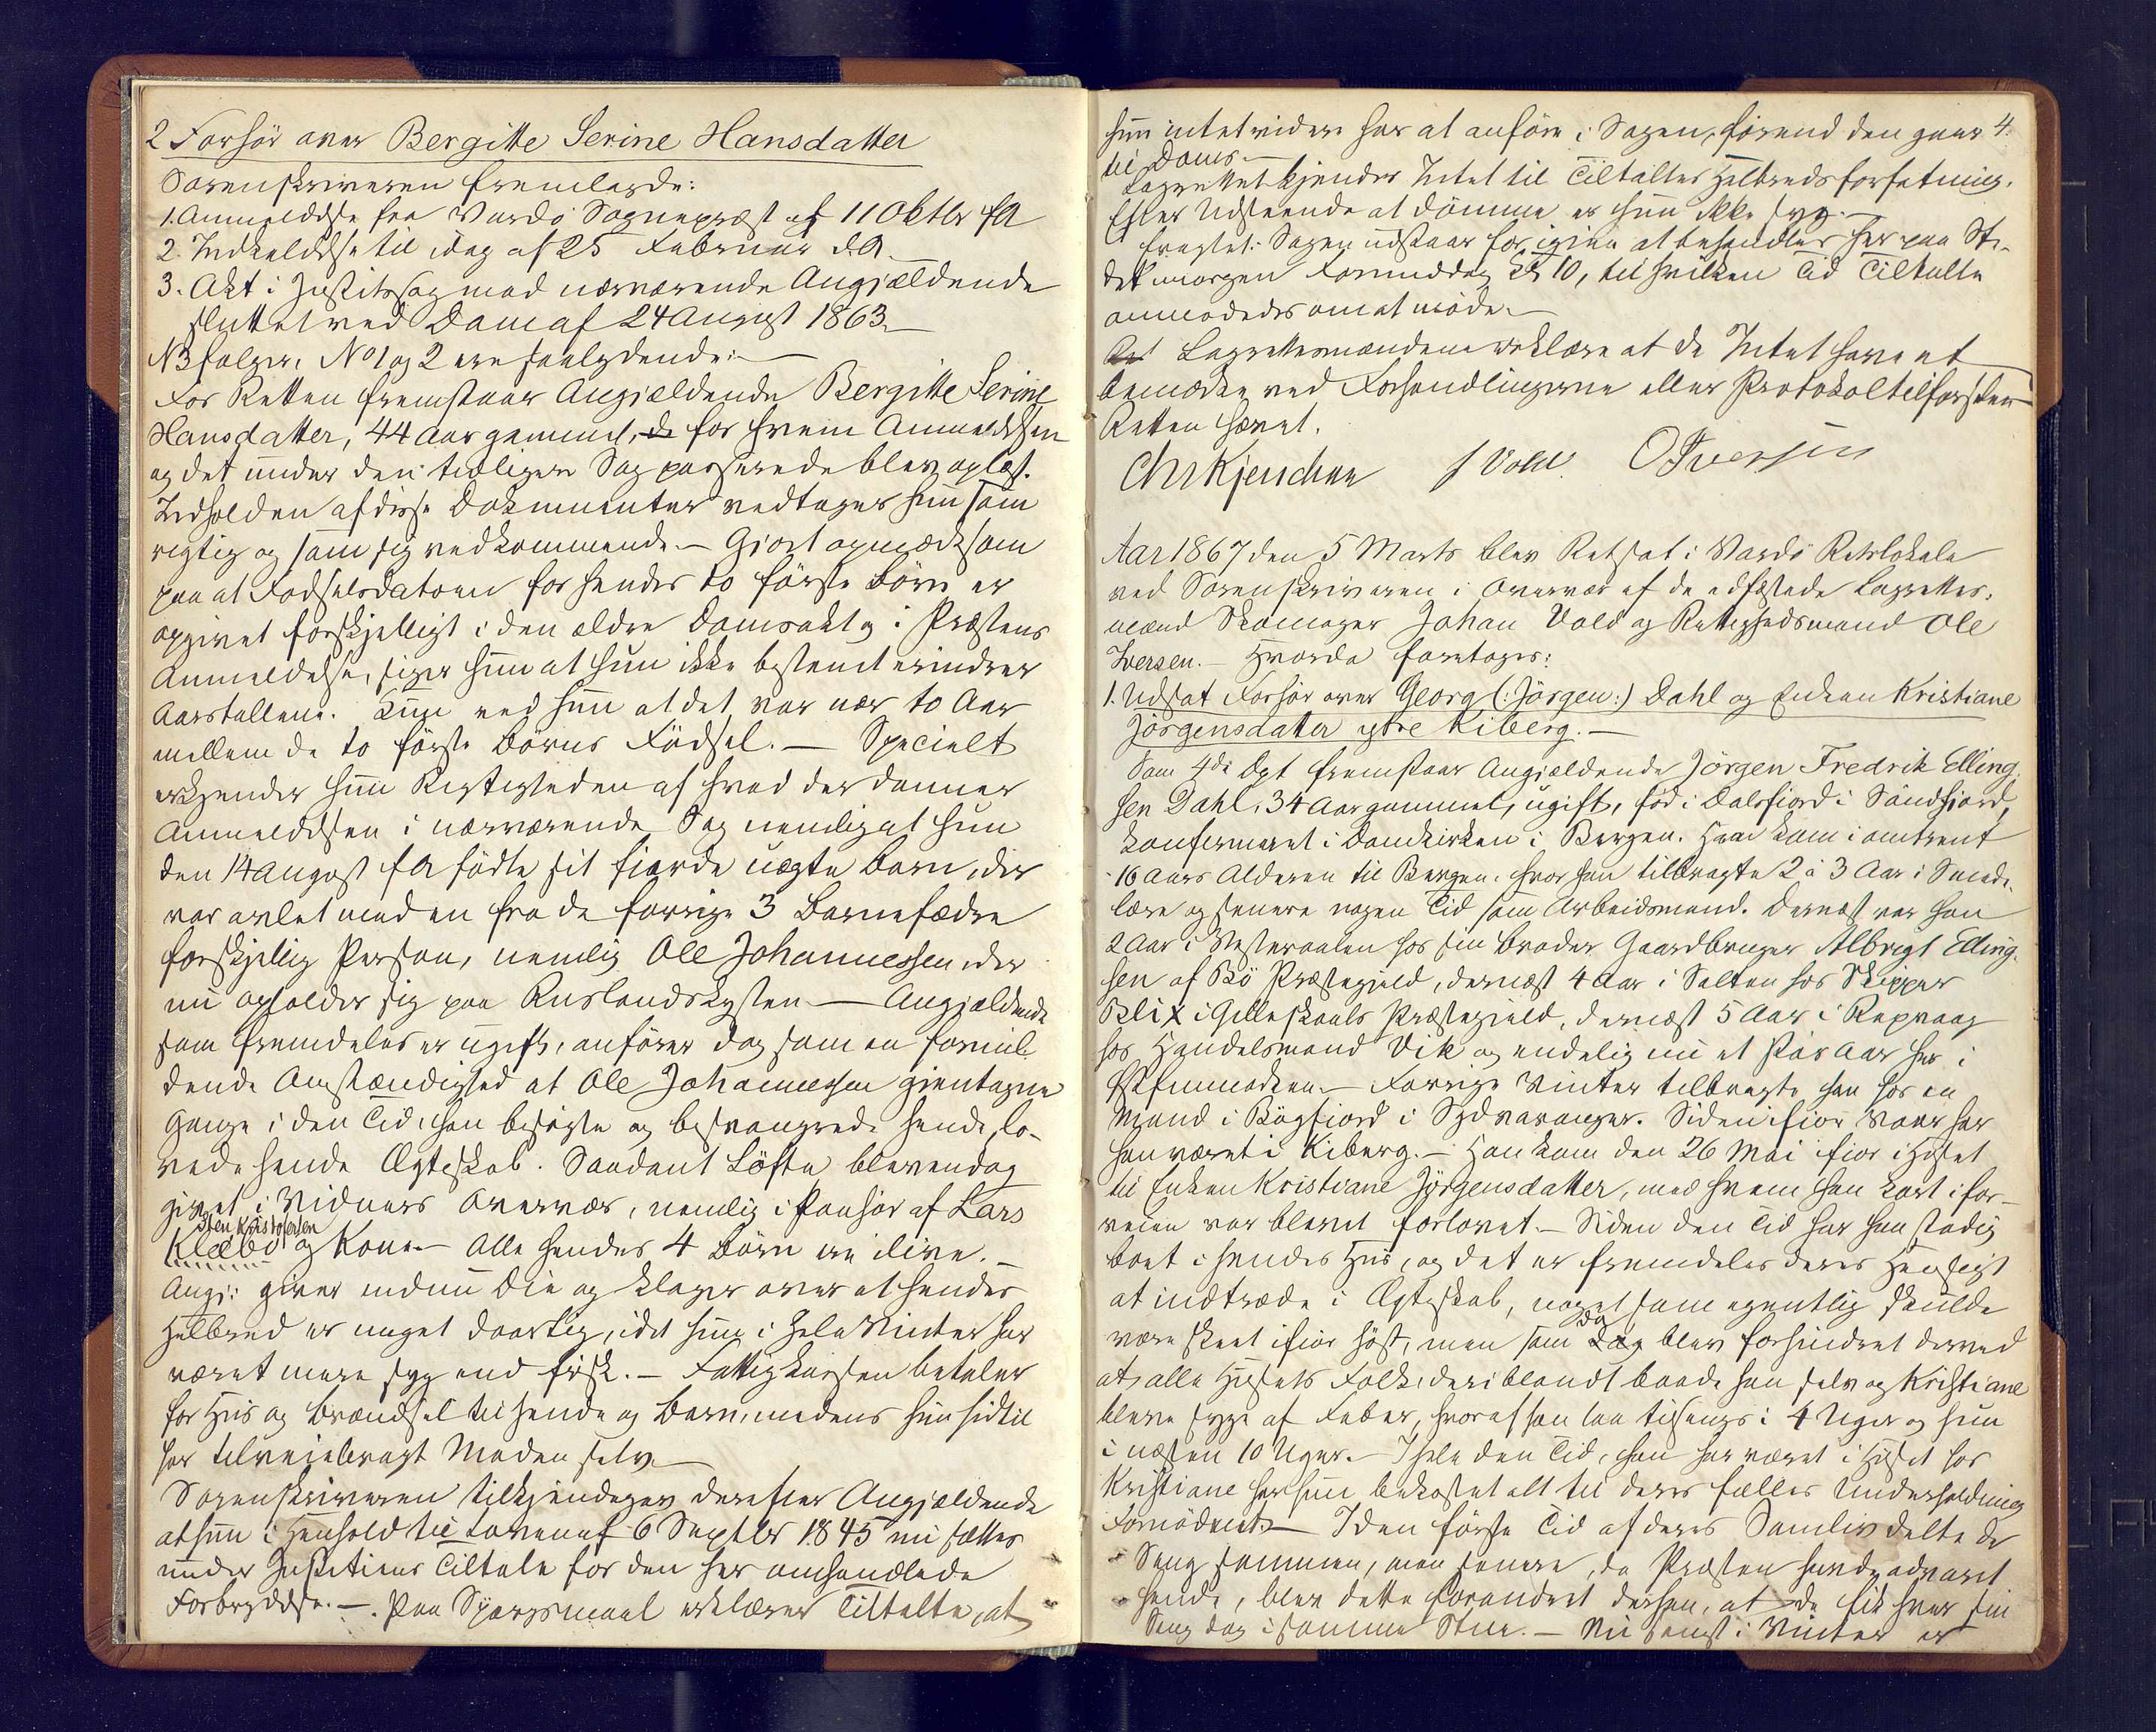 2 Forhör over Bergitte Serine Hansdatter
Sorenskriveren fremlagde:
1. Anmeldelse fra Vardö Sognepræst af 11 Oktbr fA
2. Indkaldelse til idag af 25 Februar d.A.
3. Akt i Justitssag mod nærværende Angjældende
sluttet ved Dom af 24 August 1863.
NB følger. No 1 og 2 ere saalydende:
For Retten fremstaar Angjældende Bergitte Serine
Hansdatter, 44 Aar gammel, for hvem Anmeldelsen
og det under den tidligere Sag passerede blev oplæst.
Indholden af disse Dokumenter vedtages hun som
rigtig og som sig vedkommende. – Gjort opmærksom
paa at Fødselsdatoen for hendes to förste Börn er
opgivet forskjelligt i den ældre Domsakt og i Præstens
Anmeldelse, siger hun at hun ikke bestemt erindrer
Aarstallene. Kun ved hun at det var nær to Aar
mellem de to förste Börns Födsel. – Specielt
erkjender hun Rigtigheden af hvad der danner
Anmeldelsen i nærværende Sag nemlig at hun
den 14 August fA födte sit fjerde uægte Barn, der
var avlet med en fra de forrige 3 Barnefædre
forskjellig Person, nemlig Ole Johannessen der
nu opholder sig paa Ruslandskysten – Angjældende
som fremdeles er ugift, anförer dog som en formil-
dende Omstændighed at Ole Johannessen gjentagne
Gange i den Tid, han besögte og besvangrede hende, lo-
vede hende Ægteskab. Saadant Löfte blev endog
givet i Vidners Overvær, nemlig i Paahör af Lars
sten Kristofersen
Klæbo og Kone. – Alle hendes 4 Börn ere ilive. –
Angj: giver endnu Die og klager over at hendes
Helbred er meget daarlig, idet hun i hele Vinter har
været mere syg end frisk. – Fattigkassen betaler
for Hus og Brændsel til hende og Barn, medens hun hidtil
har tilveiebragt Maden selv.
Sorenskriveren tilkjendegav derefter Angjældende
at hun i Henhold til Loven af 6 Septbr 1845 nu sættes
under Justitiens Tiltale for den her omhandlede
Forbrydelse. – Paa Spørgsmaal erklærer Tiltalte, at
hun intet videre har at anføre i Sagen, förend den gaar 4.
til Doms. –
Lagrettet kjender Intet til Tiltaltes Helbredsforfatning.
Efter Udseende at dömme er hun ikke syg. –
Fragtet: Sagen udstaar for igjen at behandles her paa Ste-
det imorgen Formiddag Kl 10, til hvilken Tid Tiltalte
anmodedes om at möde. –
Lagrettesmændene erklære at de Intet have at
bemærke ved Forhandlingerne eller Protokoltilførslen
Retten hævet.
Chr Kjerschow J Vold. O Iversen
Aar 1867 den 5 Marts blev Ret sat i Vardö Retslokale
ved Sorenskriveren i Overvær af de edfæstede Lagrettes-
mænd Skomager Johan Vold og Rettighedsmand Ole
Iversen. – Hvorda foretoges:
1. Udsat Forhör over Georg (: Jörgen :) Dahl og Enken Kristiane
Jörgensdatter ytre Kiberg. –
Som 4de Dpt fremstaar Angjældende Jörgen Fredrik Elling-
sen Dahl, 34 Aar gammel, ugift, föd i Dalsfjord i Söndfjord,
konfirmeret i Domkirken i Bergen. Han kom i omtrent
16 Aars Alderen til Bergen, hvor han tilbragte 2 à 3 Aar i Smede-
lære og senere nogen Tid som Arbeidsmand. Dernæst var han
2 Aar i Vesteraalen hos sin Broder Gaardbruger Albrigt Elling-
sen af Bö Præstegjeld, dernæst 4 Aar i Salten hos Skipper
Blix i Gilleskaals Præstegjeld, dernæst 5 Aar i Repvaag
hos Handelsmand Vik og endelig nu et Par Aar her i
Østfinmarken. – Forrige Vinter tilbragte han hos en
Mand i Bögfjord i Sydvaranger. Siden ifjor Vaar har
han været i Kiberg. – Han kom den 26 Mai ifjor i Huset
til Enken Kristiane Jörgensdatter, med hvem han kort ifor-
veien var blevet forlovet. – Siden den Tid har han stadig
boet i hendes Hus, og det er fremdeles deres Hensigt
at indtræde i Ægteskab, noget som egentlig skulde
være skeet ifjor höst, men som dog blev forhindret derved
at alle Husets Folk, deriblandt baade han selv og Kristiane
bleve syge af Feber, hvoraf han laa tilsengs i 4 Uger og hun
i næsten 10 Uger. – I hele den Tid, han har været i Huset hos
Kristiane har hun bekostet alt til deres fælles Underholdning
Fornödent. – I den förste Tid af deres Samliv delte de
Seng sammen, men senere, da Præsten havde advaret
hende, blev dette forandret derhen, at de fik hver sin
Seng dog i samme Stue. – Nu længst i Vinter er